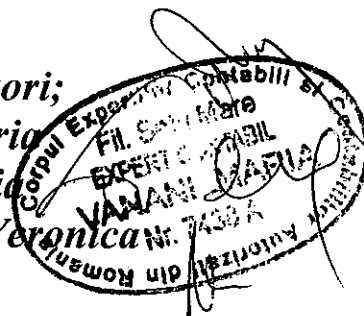 ori;
ria
ia
Veronica
Corpul Experților Contabili și Contabililor Autorizați din România
FIL. Satu Mare
EXPERT CONTABIL
VANANI MARIA
Nr. 7439 A